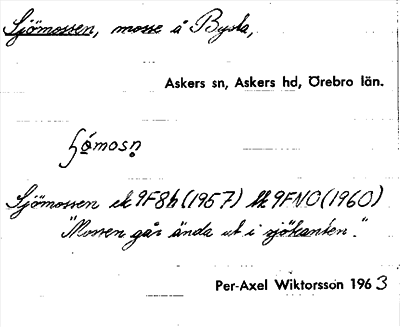 Sjömossen, mosse å Bysta,
Askers sn, Askers hd, Örebro län.
Sjömossen ek 9F8h (1957) hk 9FNO (1960)
"Mossen går ända ut i sjökanten."
Per-Axel Wiktorsson 1963